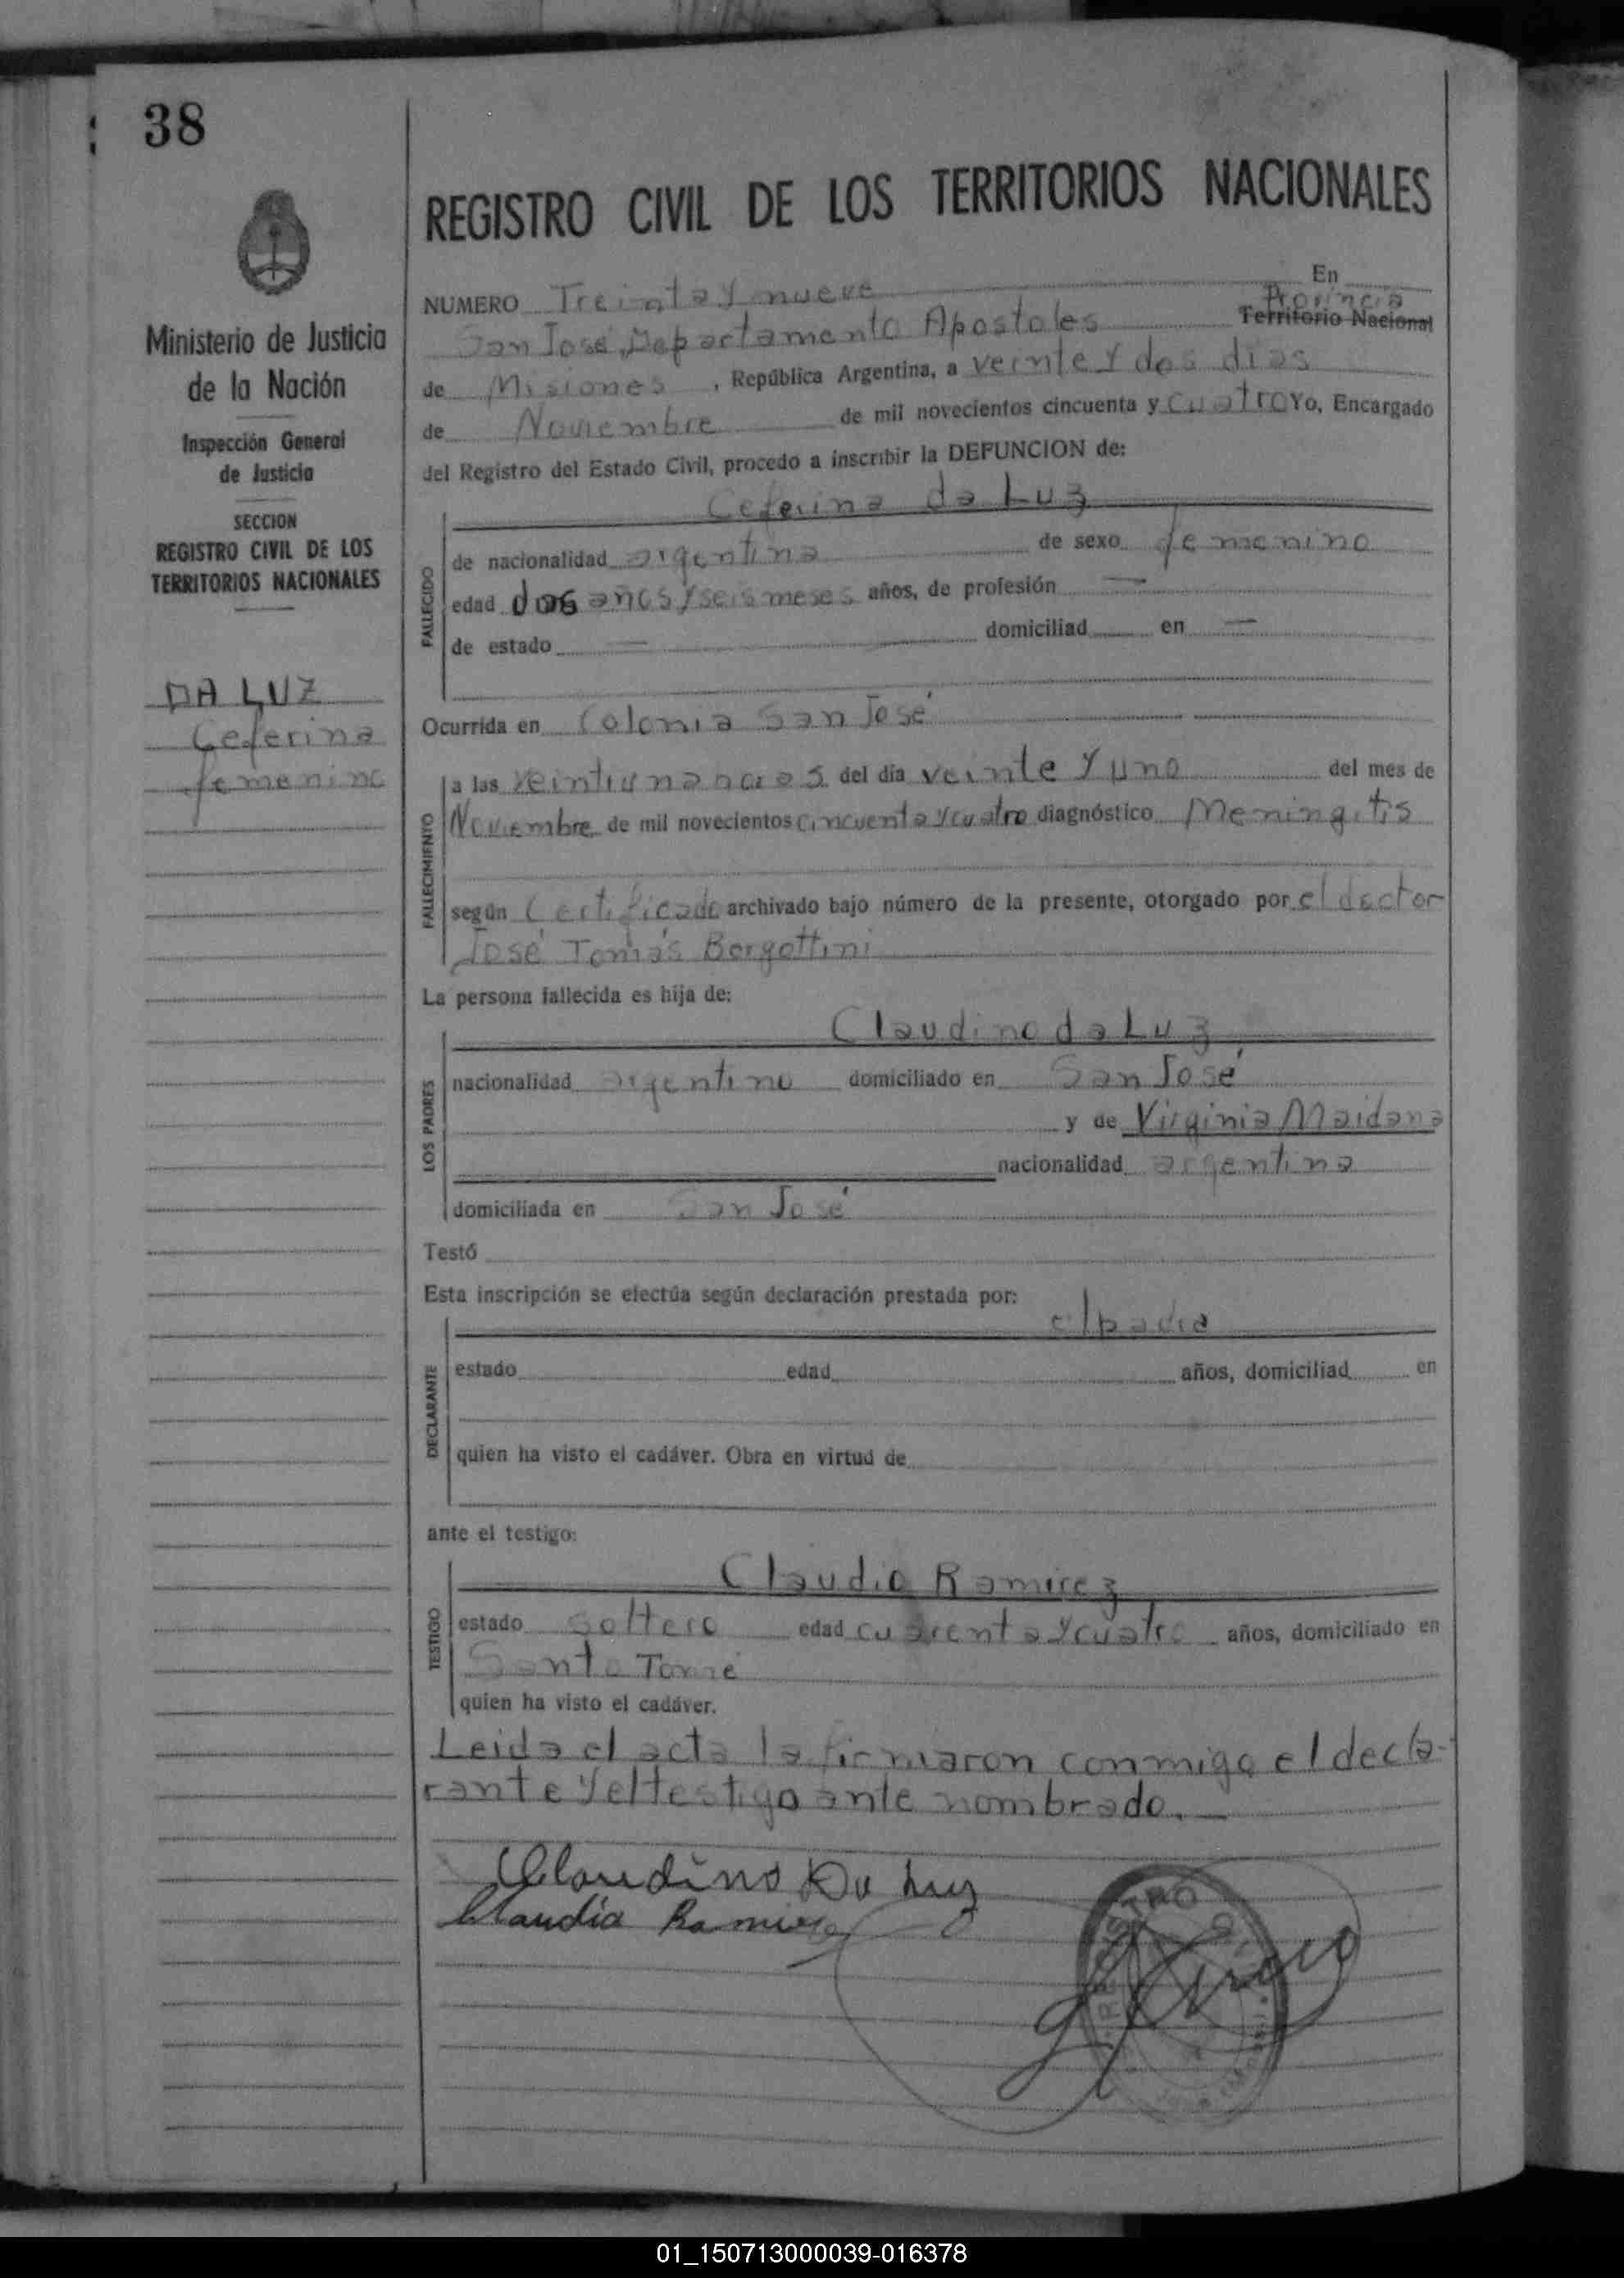 38
Ministerio de Justicia
de la Nación
Inspección General
de Justicia
SECCION
REGISTRO CIVIL DE LOS
TERRITORIOS NACIONALES
DA LUZ
Ceferina
femenino
REGISTRO CIVIL DE LOS TERRITORIOS NACIONALES
NUMERO Treinta y nueve En
San José, Departamento Apostoles Provincia Territorio Nacional
de Misiones, República Argentina, a veinte y dos dias
de Noviembre de mil novecientos cincuenta y cuatro Yo, Encargado
del Registro del Estado Civil, procedo a inscribir la DEFUNCION de:
Ceferina da Luz
FALLECIDO
de nacionalidad argentina de sexo femenino
edad dos años y seis meses años, de profesión —
de estado — domiciliad en —
Ocurrida en Colonia San José
FALLECIMIENTO
a las veintiuna horas del día veinte y uno del mes de
Noviembre de mil novecientos cincuenta y cuatro diagnóstico Meningitis
según Certificado archivado bajo número de la presente, otorgado por el doctor
José Tomás Borgottini
La persona fallecida es hija de:
LOS PADRES
Claudino da Luz
nacionalidad argentino domiciliado en San José
y de Virginia Maidana
nacionalidad argentina
domiciliada en San José
Testó
Esta inscripción se efectúa según declaración prestada por:
DECLARANTE
el padre
estado edad años, domiciliad en
quien ha visto el cadáver. Obra en virtud de
ante el testigo:
TESTIGO
Claudio Ramirez
estado soltero edad cuarenta y cuatro años, domiciliado en
Santo Tomé
quien ha visto el cadáver.
Leida el acta la firmaron conmigo el decla-
rante y el testigo ante nombrado. —
Claudino Da Luz
Claudia Ramirez
01_150713000039-016378